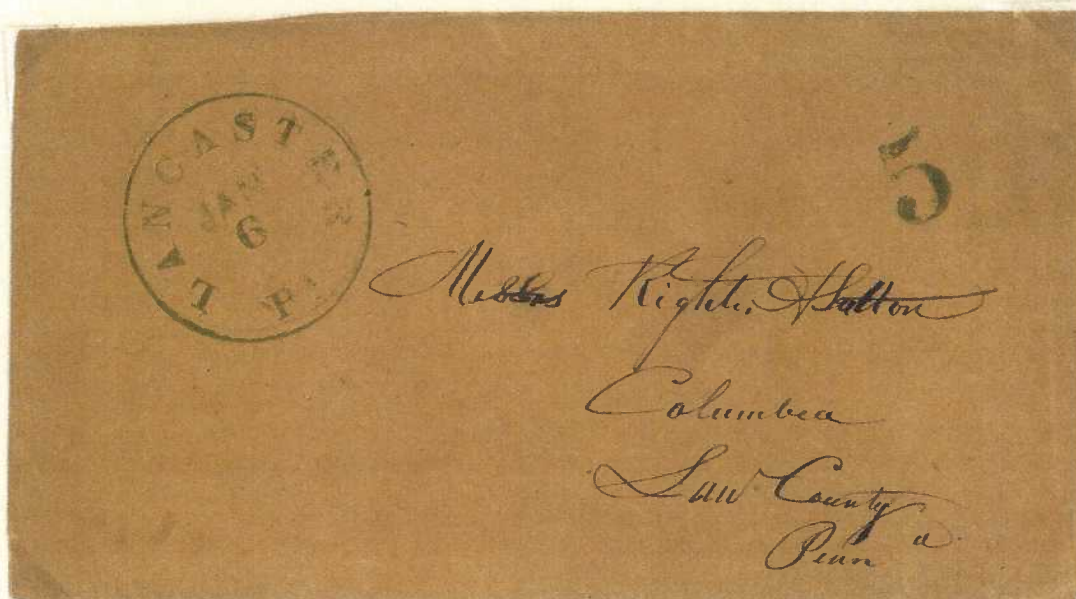 LANCASTER Pa
JAN
6
5
Messrs Righter & Sutton
Columbia
Lan County
Penn a